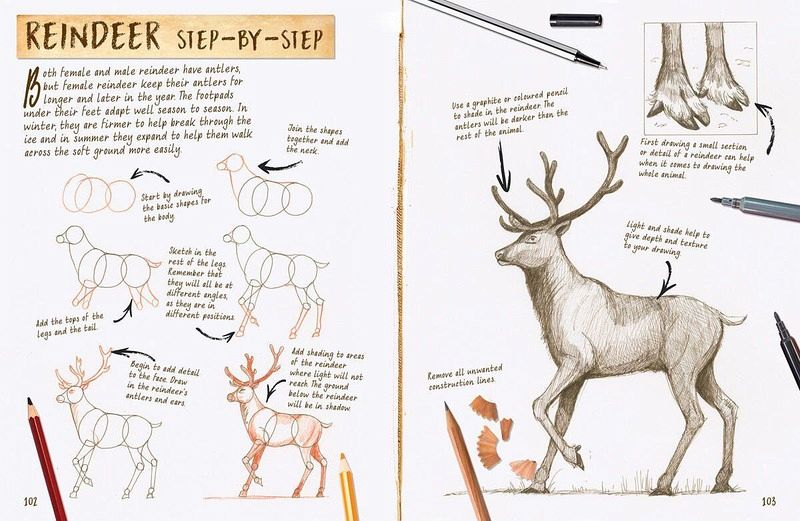 REINDEER STEP-BY-STEP
Both female and male reindeer have antlers,
but female reindeer keep their antlers for
longer and later in the year. The footpads
under their feet adapt well season to season. In
winter, they are firmer to help break through the
ice and in summer they expand to help them walk
across the soft ground more easily.
Start by drawing
the basic shapes for
the body.
Join the shapes
together and add
the neck.
Add the tops of the
legs and the tail.
Sketch in the
rest of the legs.
Remember that
they will all be at
different angles,
as they are in
different positions.
Begin to add detail
to the face. Draw
in the reindeer's
antlers and ears.
Add shading to areas
of the reindeer
where light will not
reach. The ground
below the reindeer
will be in shadow.
102
Use a graphite or coloured pencil
to shade in the reindeer. The
antlers will be darker than the
rest of the animal.
First drawing a small section
or detail of a reindeer can help
when it comes to drawing the
whole animal.
Light and shade help to
give depth and texture
to your drawing.
Remove all unwanted
construction lines.
103